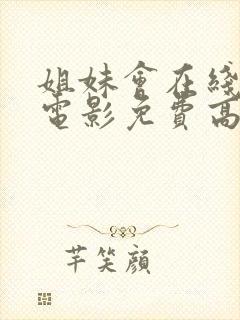 姐妹會在綫
電影免費高
芊笑顏